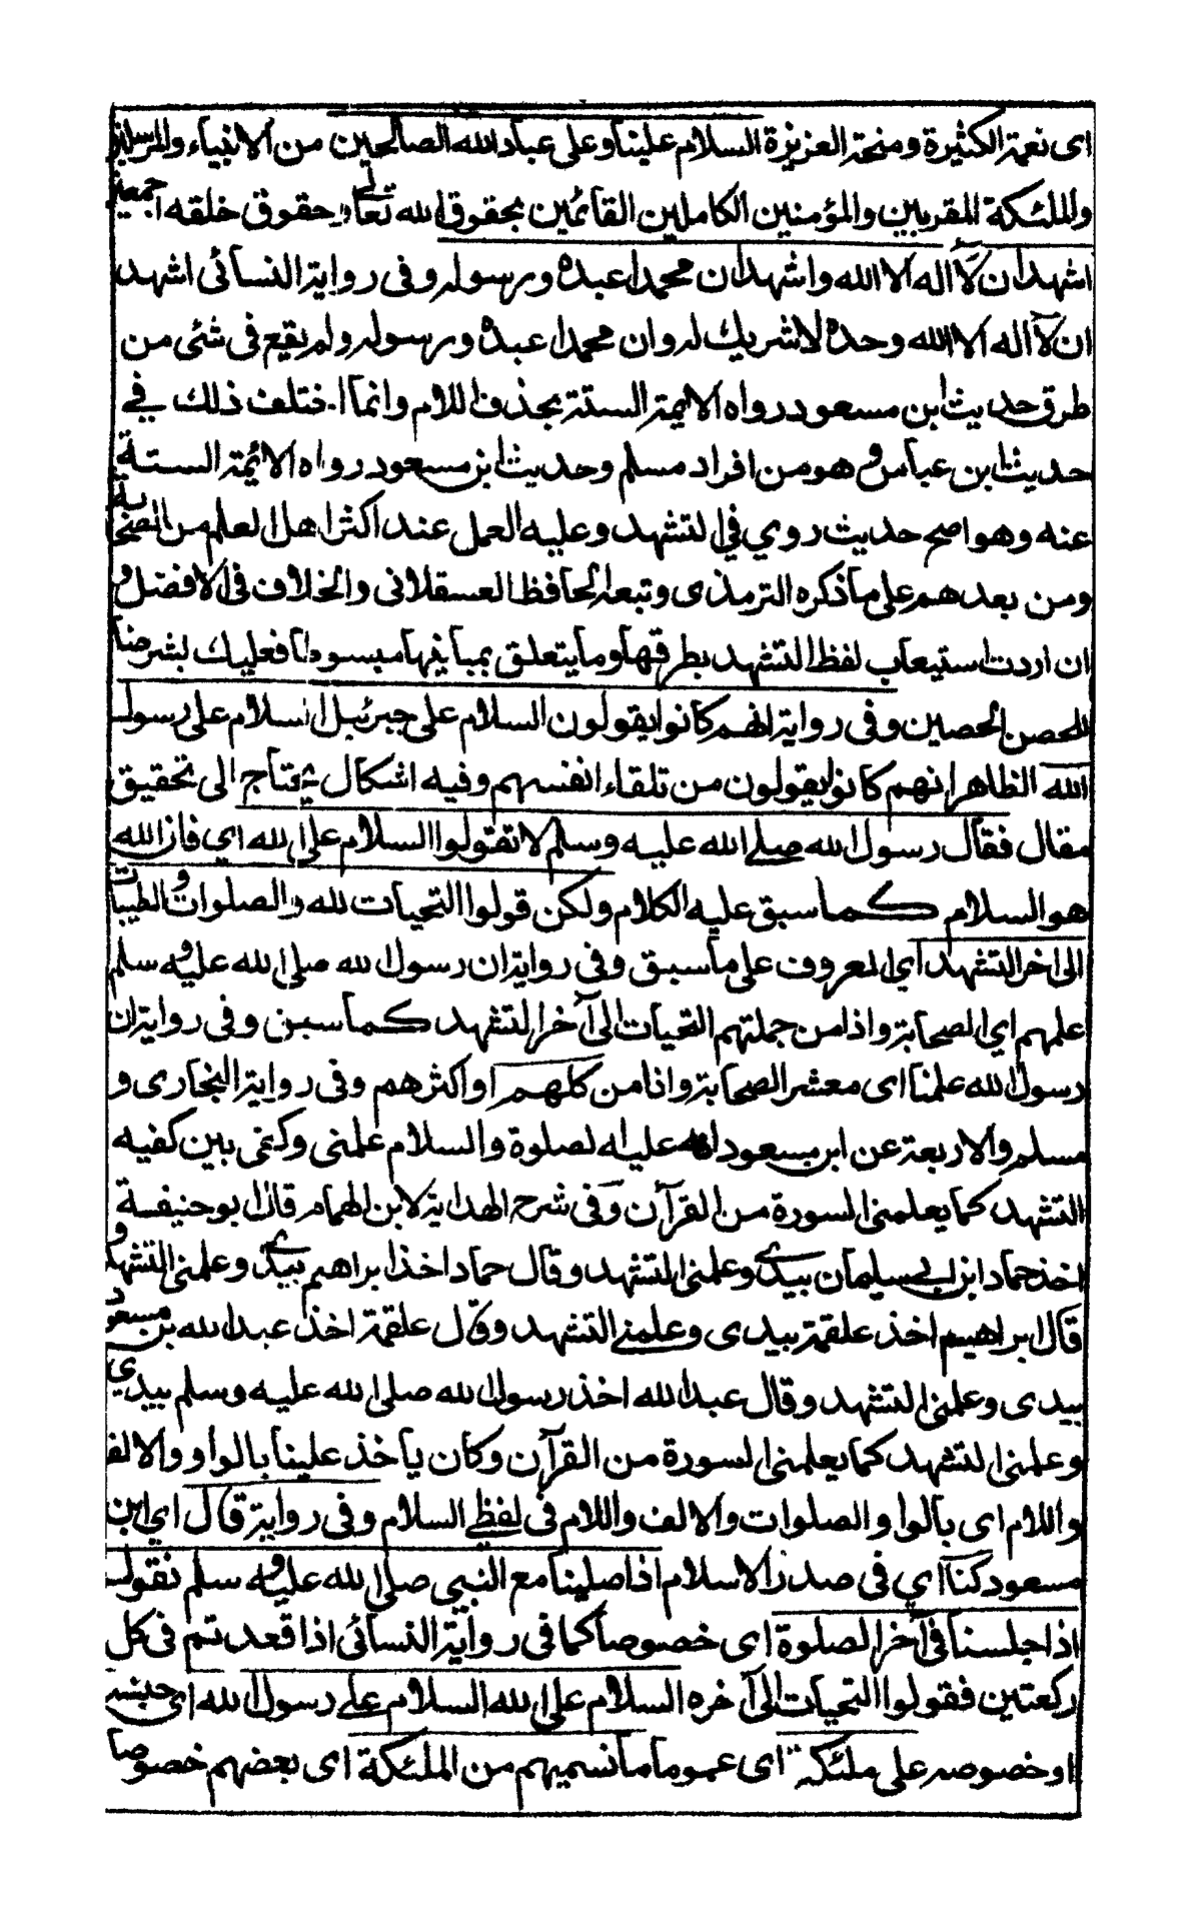 اى نعمة الكثيرة ومنحة العزيزة السلام علينا وعلى عباد الله الصالحين من الانبياء والمرسلين
والملئكة المقربين والمؤمنين الكاملين القائمين بحقوق الله تعالى وحقوق خلقه اجمعين
اشهد ان لآ اله الا الله واشهد ان محمدا عبده ورسوله وفى رواية النسائى اشهد
ان لآ اله الا الله وحده لا شريك له وان محمدا عبده ورسوله ولم يقع فى شئى من
طرق حديث ابن مسعود رواه الايمة الستة بحذف اللام وانما اختلف ذلك في
حديث ابن عباس و هو من افراد مسلم وحديث ابن مسعود رواه الائمة الستة
عنه وهو اصح حديث روي في التشهد وعليه العمل عند اكثر اهل العلم من الصحابة
ومن بعدهم على ما ذكره الترمذى وتبعه الحافظ العسقلانى والخلاف فى الافضل و
ان اردت استيعاب لفظ التشهد بطرقها وما يتعلق بمبانيها مبسوطا فعليك بشرحنا
للحصن الحصين وفى رواية انهم كانوا يقولون السلام على جبرئيل السلام على رسول
الله الظاهر انهم كانوا يقولون من تلقاء انفسهم وفيه اشكال يحتاج الى تحقيق
مقال فقال رسول الله صلى الله عليه وسلم لا تقولوا السلام على الله اي فان الله
هو السلام كما سبق عليه الكلام ولكن قولوا التحيات لله والصلوات والطيبات
الى اخر التشهد اي المعروف على ما سبق وفى رواية ان رسول الله صلى الله عليه و سلم
علمهم اي الصحابة واذا من جملتهم التحيات الى آخر التشهد كما سبق وفى رواية ان
رسول الله علمنا اى معشر الصحابة واذا من كلهم او اكثرهم وفى رواية البخارى و
مسلم والاربعة عن ابن مسعود انه عليه الصلوة والسلام علمنى وكفى بين كفيه
التشهد كما يعلمنى السورة من القرآن وفى شرح الهداية لابن الهمام قال ابو حنيفة
اخذ حماد ابن ابي سليمان بيدي وعلمنى التشهد وقال حماد اخذ ابراهيم بيدي وعلمنى التشهد و
قال ابراهيم اخذ علقمة بيدى وعلمني التشهد وقال علقمة اخذ عبد الله بن مسعود
بيدى وعلمنى التشهد وقال عبد الله اخذ رسول الله صلى الله عليه وسلم بيدي
وعلمنى التشهد كما يعلمنى السورة من القرآن وكان يأخذ علينا بالواو والالف
واللام اى بالواو والصلوات والالف واللام فى لفظي السلام وفى رواية قال اي ابن
مسعود كنا اي فى صدر الاسلام اذا صلينا مع النبي صلى الله عليه و سلم نقول
اذا جلسنا فى آخر الصلوة اى خصوصا كما فى رواية النسائى اذا قعدتم فى كل
ركعتين فقولوا التحيات الى آخره السلام على الله السلام على رسول الله اى جنسه
او خصوصه على ملئكته اى عموما ما نسميهم من الملئكة اى بعضهم خصوصا